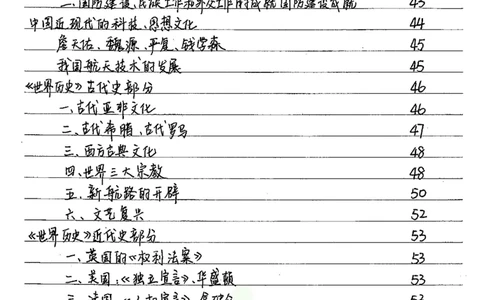 二、国防建设、民族工作和外交工作的成就国防建设成就 43
中国近现代的科技、思想文化 44
詹天佑、魏源、严复、钱学森 45
我国航天技术的发展 45
《世界历史》古代史部分 46
一、古代亚非文化 46
二、古代希腊、古代罗马 47
三、西方古典文化 48
四、世界三大宗教 48
五、新航路的开辟 50
六、文艺复兴 52
《世界历史》近代史部分 53
一、英国的《权利法案》 53
二、美国:《独立宣言》、华盛顿 53
三、法国:《人权宣言》、拿破仑 53